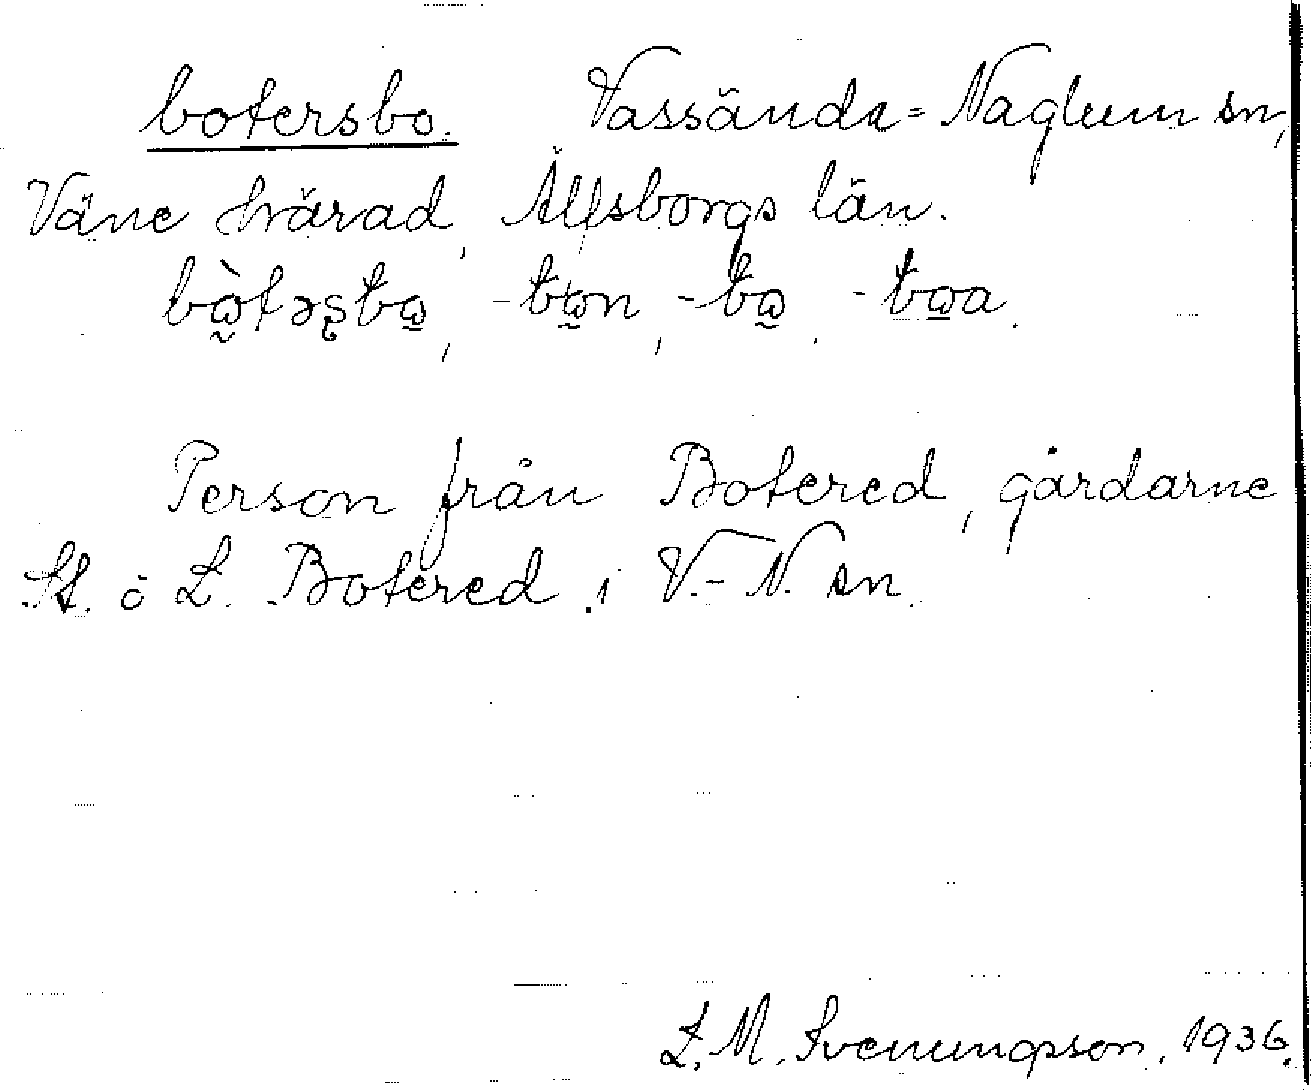 botersbo. Vassända-Naglum sn,
Väne härad, Älfsborgs län.
bòtəʂbo, -bon, -bo, -boa.
Person från Botered, gårdarne
St. o L. Botered i V.-N. sn.
L. M. Svenungsson, 1936.